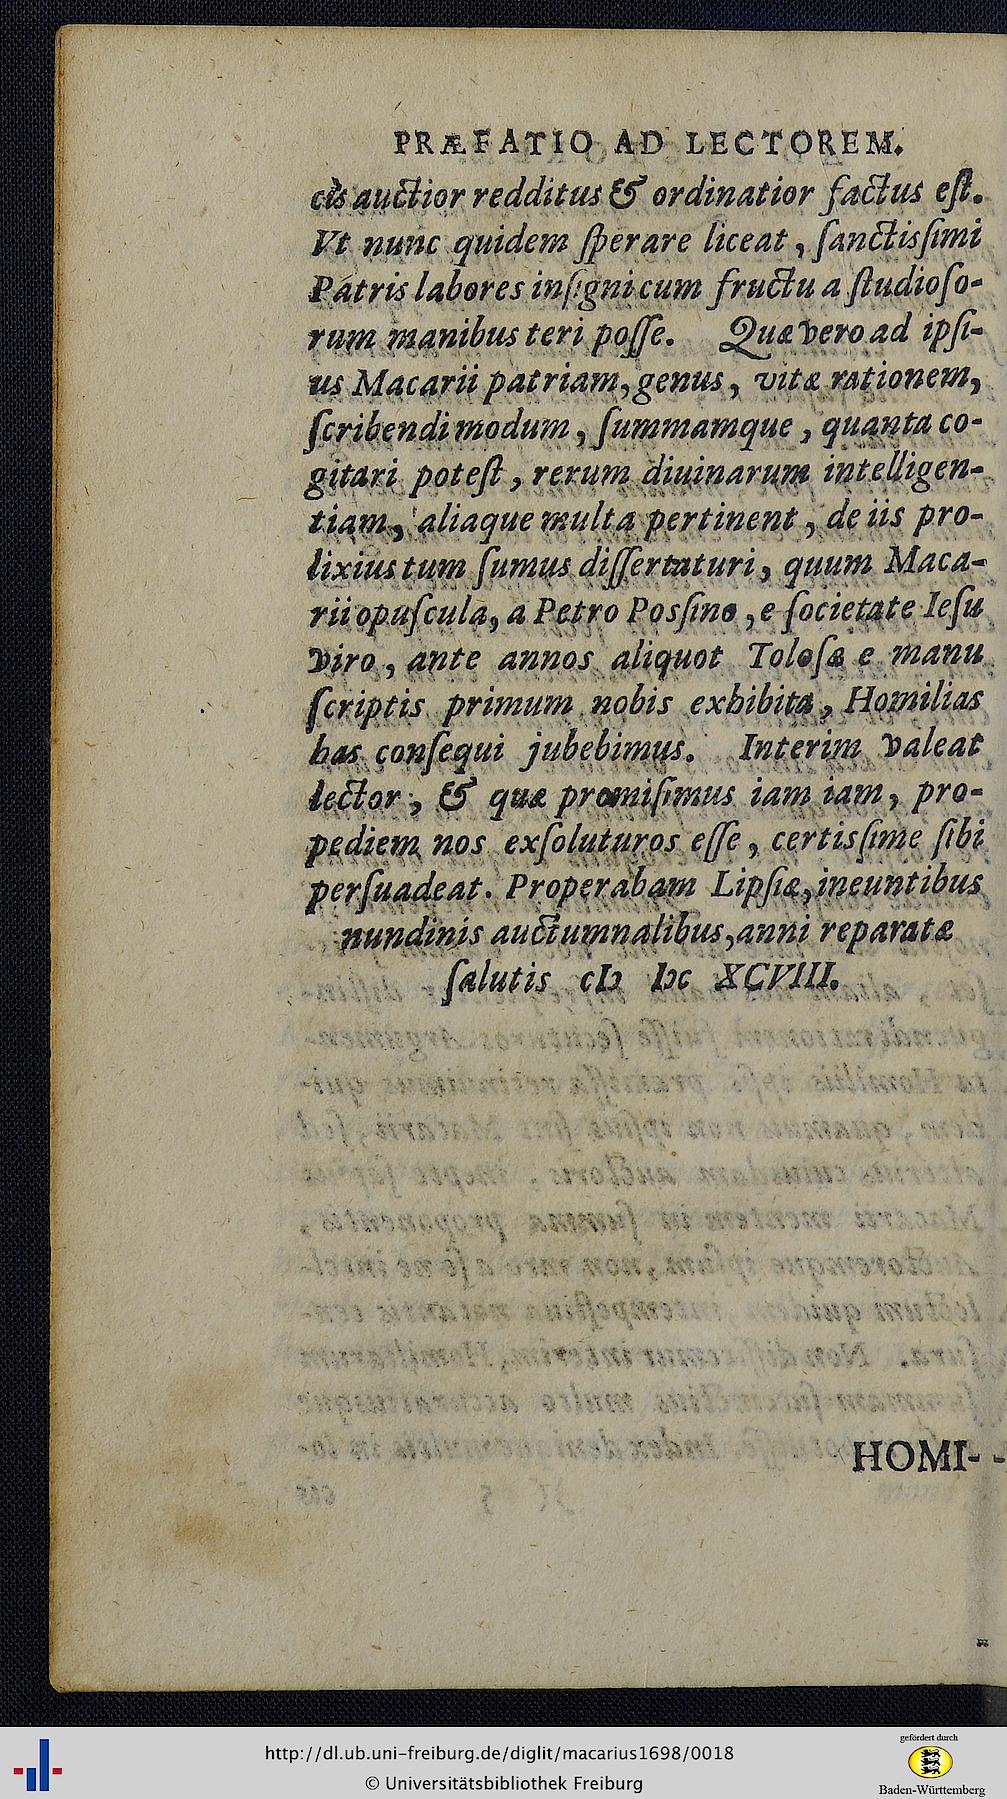 PRÆFATIO AD LECTOREM.
cis auctior redditus & ordinatior factus eſt.
Vt nunc quidem ſperare liceat, ſanctisſimi
Patris labores inſigni cum fructu a ſtudioſo-
rum manibus teri poſſe. Quæ vero ad ipſi-
us Macarii patriam, genus, vitæ rationem,
ſcribendi modum, ſummamque, quanta co-
gitari poteſt, rerum diuinarum intelligen-
tiam, aliaque multa pertinent, de iis pro-
lixius tum ſumus diſſertaturi, quum Maca-
rii opuſcula, a Petro Posſino, e ſocietate Ieſu
viro, ante annos aliquot Toloſæ e manu
ſcriptis primum nobis exhibita, Homilias
has conſequi jubebimus. Interim valeat
lector, & quæ promiſimus iam iam, pro-
pediem nos exſoluturos eſſe, certisſime ſibi
perſuadeat. Properabam Lipſiæ, ineuntibus
nundinis auctumnalibus, anni reparatæ
ſalutis cIↃ IↃc XCVIII.
HOMI-
http://dl.ub.uni-freiburg.de/diglit/macarius1698/0018
© Universitätsbibliothek Freiburg
gefördert durch
Baden-Württemberg